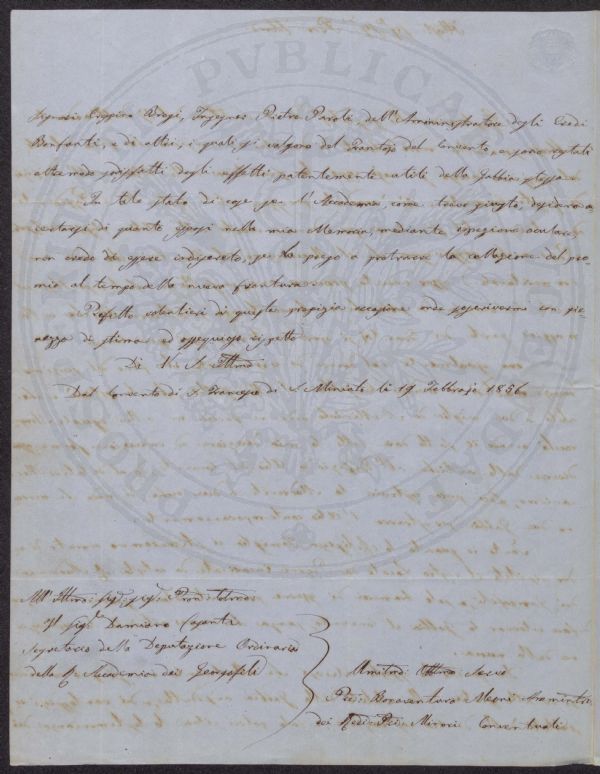 Ingegner Pietro Paroli, dell'Amministratore degli Eredi
Bonfanti, e di altri, i quali si valgono del Frantojo del Convento, e sono restati
oltremodo degli effetti patentemente utili della Gabbia stessa.
In tale stato di cose per l'Accademia, come trovo giusto, desidera ac-
certarsi di quanto esposi nella mia Memoria, mediante ispezione oculare,
non credo di essere indiscreto, se la prego a protrarre la collazione del pre-
mio al tempo della nuova frantura.
Profitto volentieri di questa propizia occasione onde soscrivermi con pie-
nezza di stima ed ossequioso rispetto
Di V. S. Illma
Dal Convento di S. Francesco di S. Miniato li 19 Febbrajo 1856
All' Illmo: Sig: Sig: Pron: Colmo:
Il Sig:r Damiano Casanti
Segretario della Deputazione Ordinaria
della R. Accademia dei Georgofili
Umilmo Servo
Bonaventura
dei Minori Conventuali
PROSPERITATI PVBLICAE